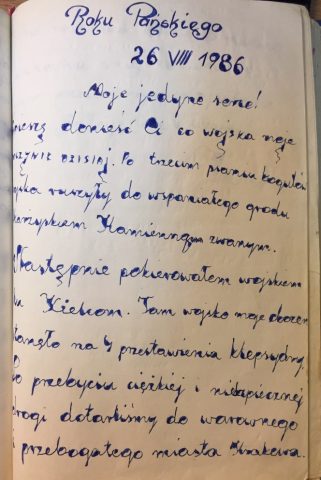 Roku Pańskiego
26 VIII 1986
Moje jedyne serce!
donieść Ci co wojska moje
dzisiaj. Po trzecim pianiu kogutów
ruszyły do wspaniałego grodu
Kamiennym zwanym.
Następnie pokierowałem wojskiem
Kielcom. Tam wojsko moje obozem
stanęło na 4 przestawienia klepsydry.
Po przebyciu ciężkiej i niebezpiecznej
drogi dotarliśmy do warownego
i przebogatego miasta Krakowa.